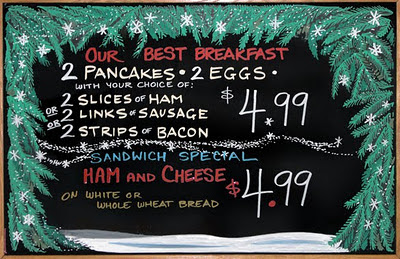 OUR BEST BREAKFAST
2 PANCAKES • 2 EGGS •
WITH YOUR CHOICE OF:
2 SLICES OF HAM
OR 2 LINKS OF SAUSAGE
OR 2 STRIPS OF BACON
$4.99
SANDWICH SPECIAL
HAM AND CHEESE
$4.99
ON WHITE OR
WHOLE WHEAT BREAD